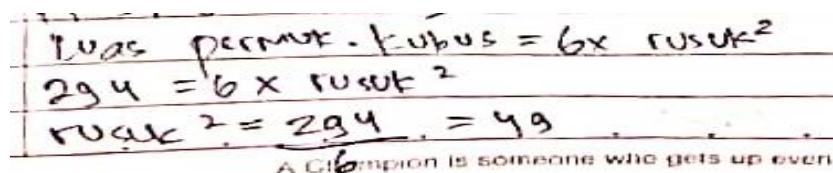 Luas permuk. kubus = 6x rusuk²
294 = 6 x rusuk²
rusuk² = 294 = 49
6
A Champion is someone who gets up even